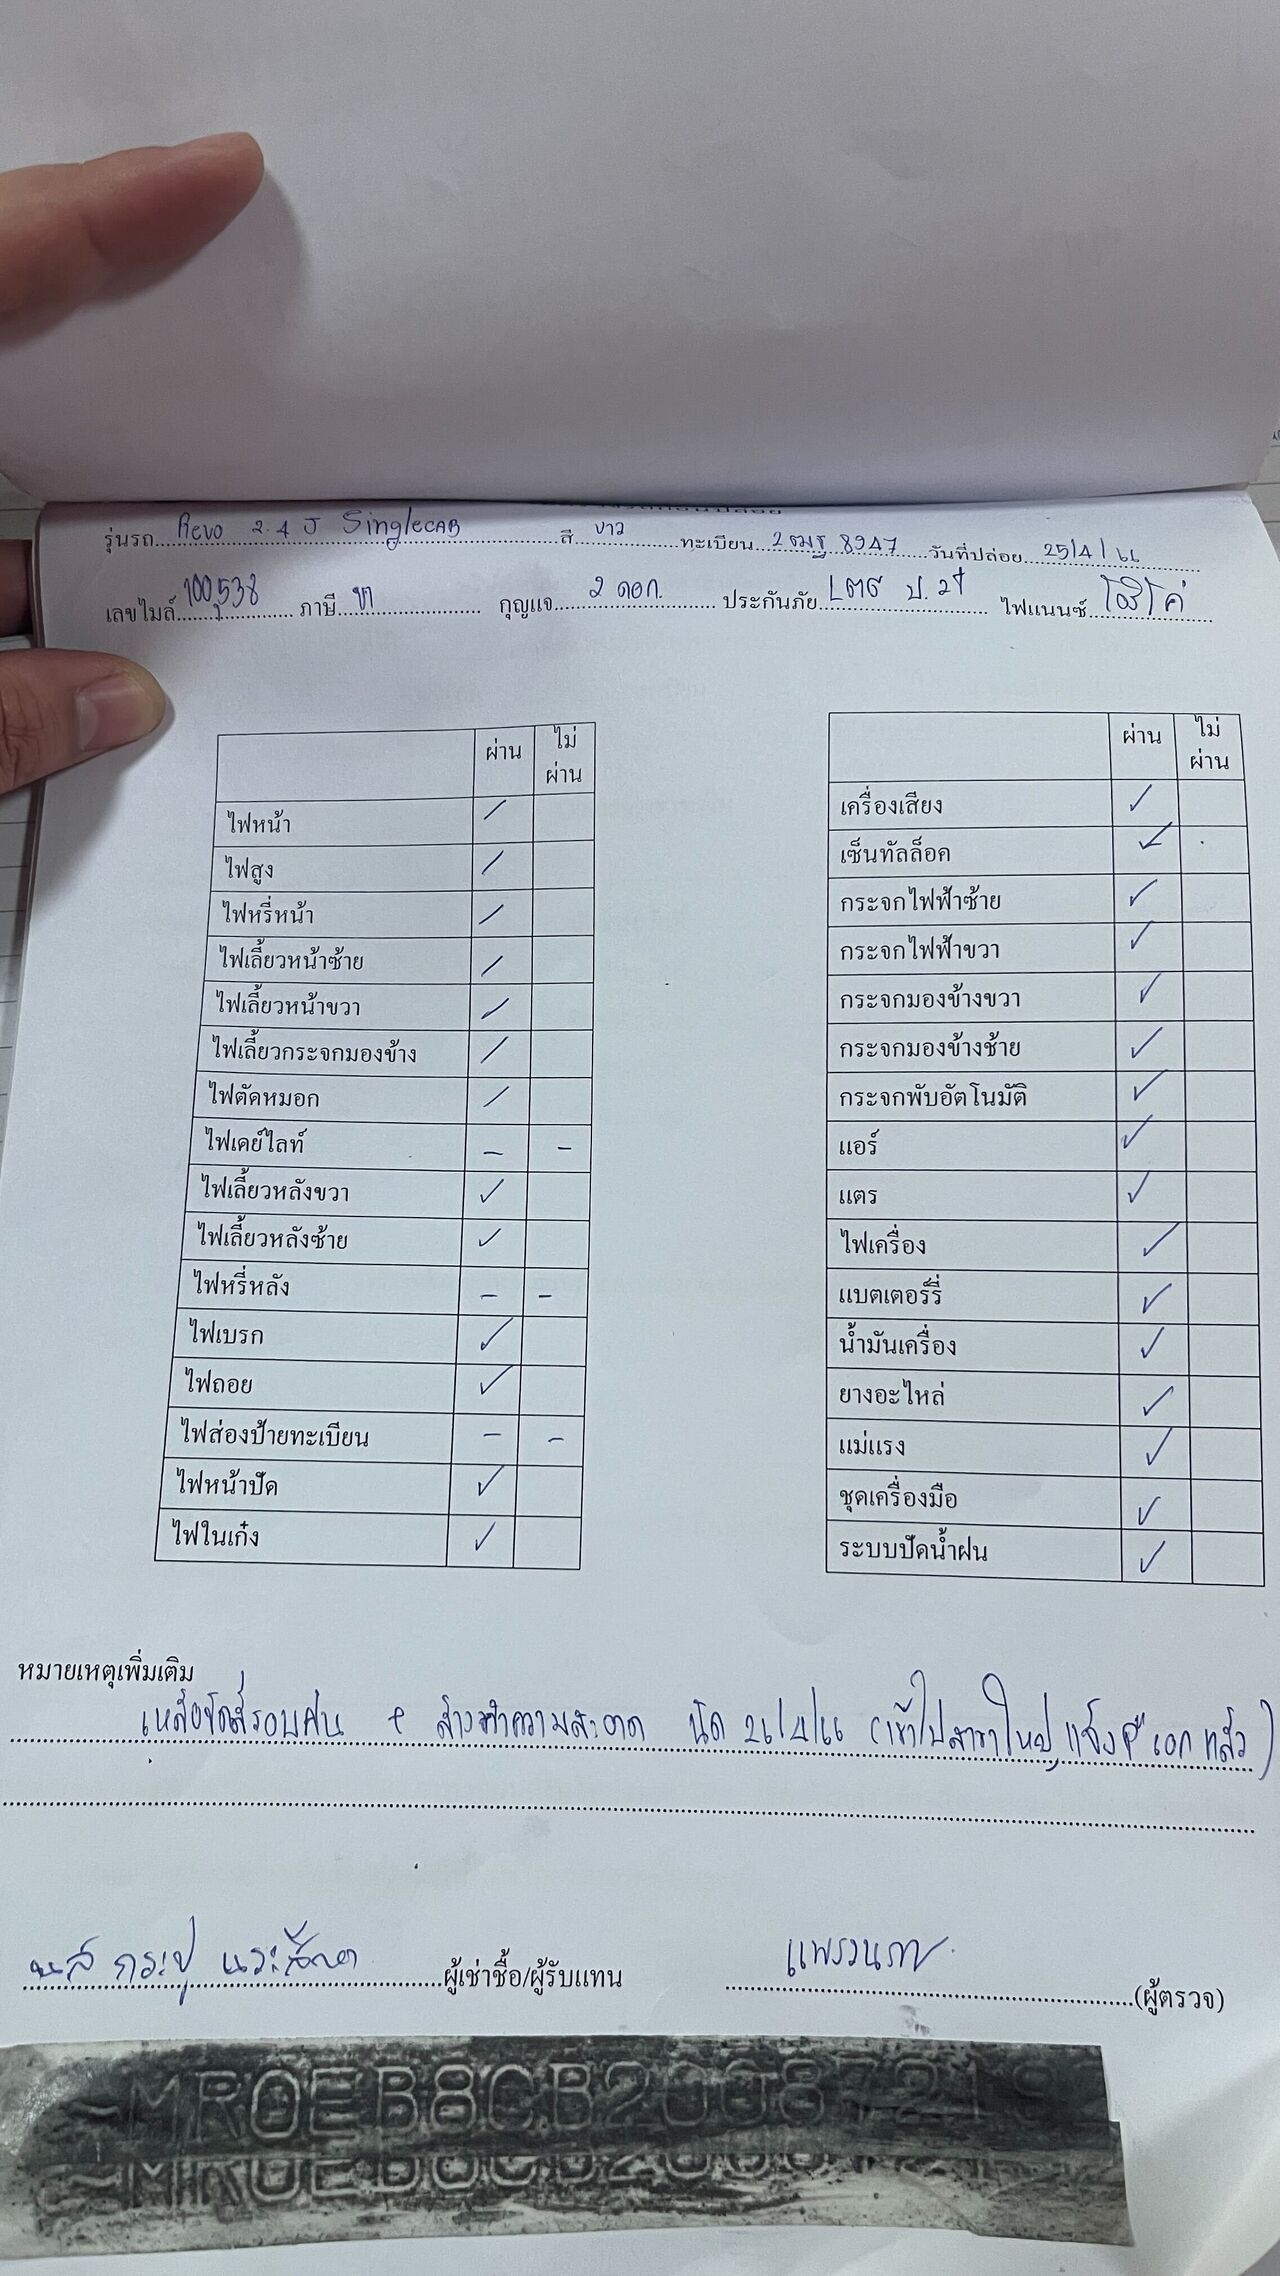 รุ่นรถ Revo 2.4 J SingleCAB สี ขาว ทะเบียน 2ฒฐ 8947 วันที่ปล่อย 25/4/66
เลขไมล์ 100,538 ภาษี ขา กุญแจ 2 ดอก. ประกันภัย ป.2+ ไฟแนนซ์ โตโต้
ผ่าน ไม่ผ่าน
ไฟหน้า /
ไฟสูง /
ไฟหรี่หน้า /
ไฟเลี้ยวหน้าซ้าย /
ไฟเลี้ยวหน้าขวา /
ไฟเลี้ยวกระจกมองข้าง /
ไฟตัดหมอก /
ไฟเดย์ไลท์ - -
ไฟเลี้ยวหลังขวา ✓
ไฟเลี้ยวหลังซ้าย ✓
ไฟหรี่หลัง - -
ไฟเบรก ✓
ไฟถอย ✓
ไฟส่องป้ายทะเบียน - -
ไฟหน้าปัด ✓
ไฟในเก๋ง ✓
ผ่าน ไม่ผ่าน
เครื่องเสียง ✓
เซ็นทัลล็อค ✓
กระจกไฟฟ้าซ้าย ✓
กระจกไฟฟ้าขวา ✓
กระจกมองข้างขวา ✓
กระจกมองข้างซ้าย ✓
กระจกพับอัตโนมัติ ✓
แอร์ ✓
แตร ✓
ไฟเครื่อง ✓
แบตเตอร์รี่ ✓
น้ำมันเครื่อง ✓
ยางอะไหล่ ✓
แม่แรง ✓
ชุดเครื่องมือ ✓
ระบบปัดน้ำฝน ✓
หมายเหตุเพิ่มเติม
เหลือขัดสีรอบคัน + ล้างทำความสะอาด นัด 26/4/66 (เข้าไปสาขาใหญ่ แจ้งพี่เอกแล้ว)
ผู้เช่าซื้อ/ผู้รับแทน
(ผู้ตรวจ)
~MR0EB8CB20087219